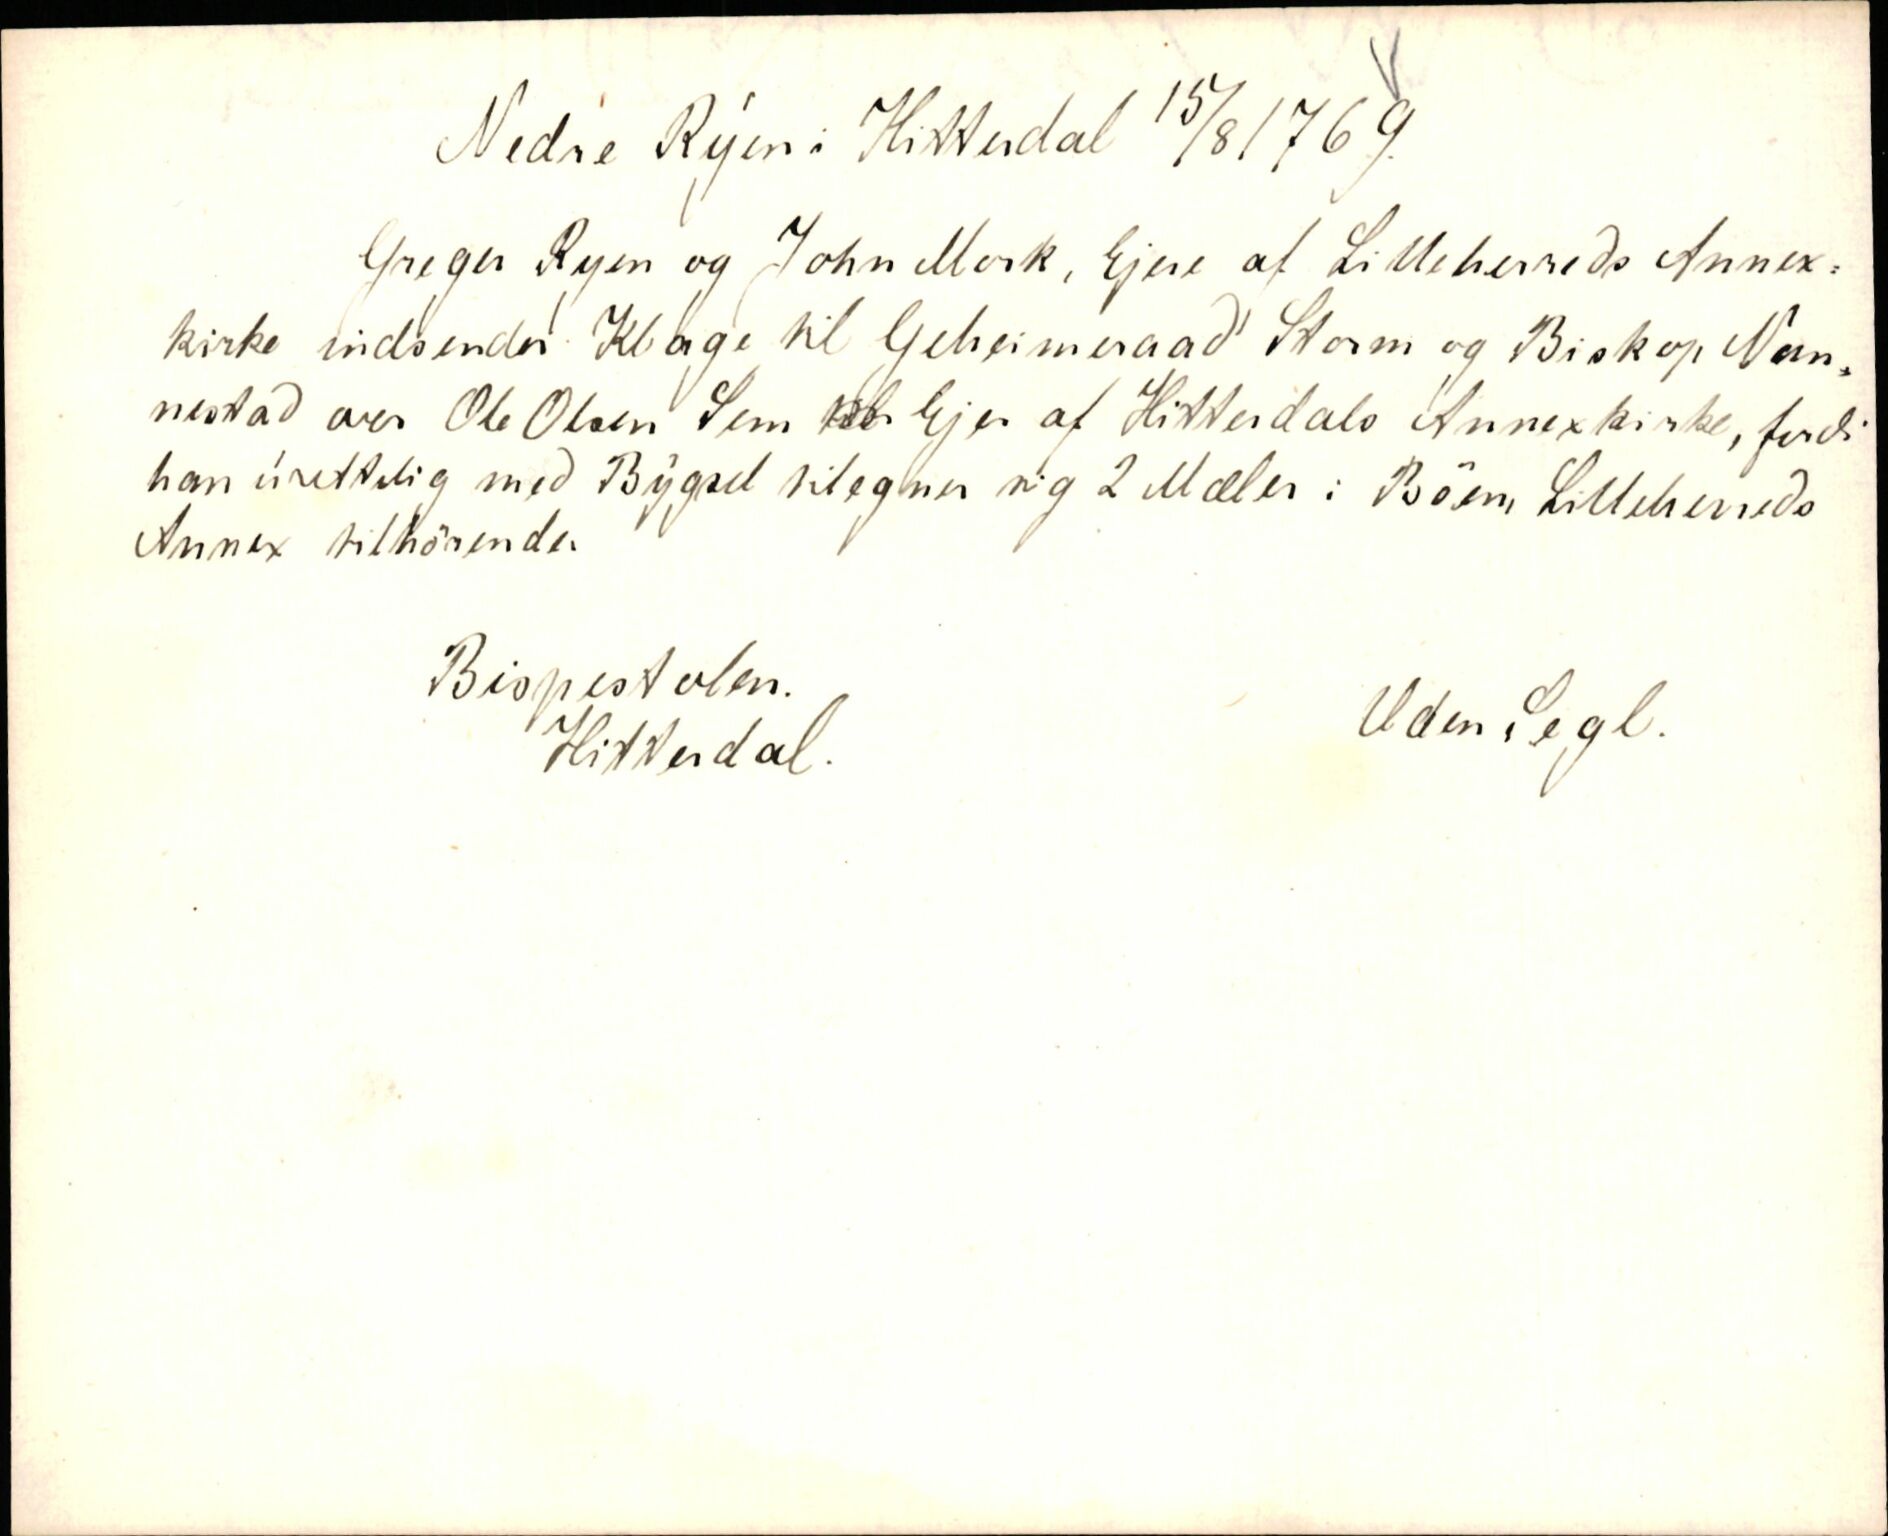 Nedre Ryen i Hitterdal 15/8 1769.
Greger Ryen og John Mork, Ejere af Lilleherreds Annex=
kirke indsender Klage til Geheimeraad Storm og Biskop Nan=
nestad over Ole Olsen Sem Ejer af Hitterdals Annexkirke, fordi
han urettelig med Bygsel tilegner sig 2 Mæler i Böen, Lilleherreds
Annex tilhörende.
Bispestolen.
Hitterdal.
Uden Segl.